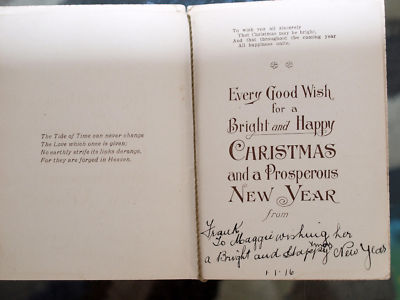 The Tide of Time can never change
The Love which once is given;
No earthly strife its links derange,
For they are forged in Heaven.
To wish you all sincerely
That Christmas may be bright,
And that throughout the coming year
All happiness unite.
Every Good Wish
for a
Bright and Happy
CHRISTMAS
and a Prosperous
NEW YEAR
from
Frank
To Maggie wishing her
a Bright and Happy Xmas New Year
1-1-16